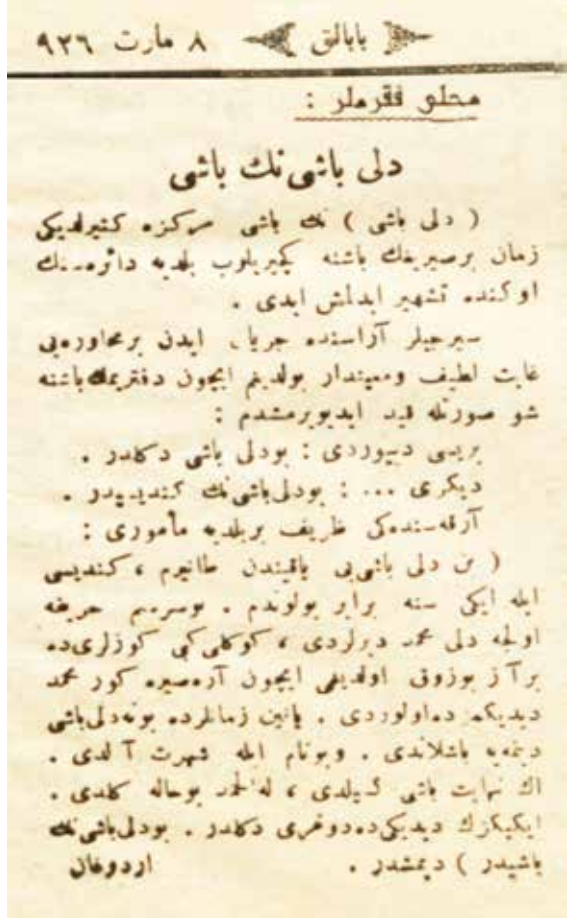 بابالق ٨ مارت ٩٢٦
محلى فقره‌لر :
دلى باشى نك باشى
( دلى باشى ) نك باشى مركزه كتيرلديكى
زمان برصيريغك باشنه كچيريلوب بلديه دائره‌سنك
اوكنده تشهير ايدلمش ايدى .
سيرجيلر آراسنده جريان ايدن برمحاوره‌يى
غايت لطيف ومعنيدار بولديغم ايچون دفتريمك باشنه
شو صورتله قيد ايديويرمشدم :
بريسى ديبوردى : بودلى باشى دكلدر .
ديكرى ... : بودلى‌باشى‌نك كنديسيدر .
آرقه‌سنده‌كى ظريف بربلديه مأمورى :
( بن دلى باشى‌يى ياقيندن طانيرم ، كنديسى
ايله ايكى سنه برابر بولوندم . بوسرسم حريفه
اولجه دلى محمد ديرلردى ، كوكلى كبى كوزلرى‌ده
برآز بوزوق اولديغى ايچون آره‌صيره كور محمد
ديديكلر ده‌اولوردى . ياقين زمانلرده بونه‌دلى‌باشى
دينمه‌يه باشلاندى . وبونام ايله شهرت آلدى .
اك نهايت باشى كسيلدى ، له‌الحمد بوحاله كلدى .
ايكيكزك ديديكى‌ده‌دوغرى دكلدر . بودلى‌باشى‌نك
باشيدر ) ديمشدر . اردوغان